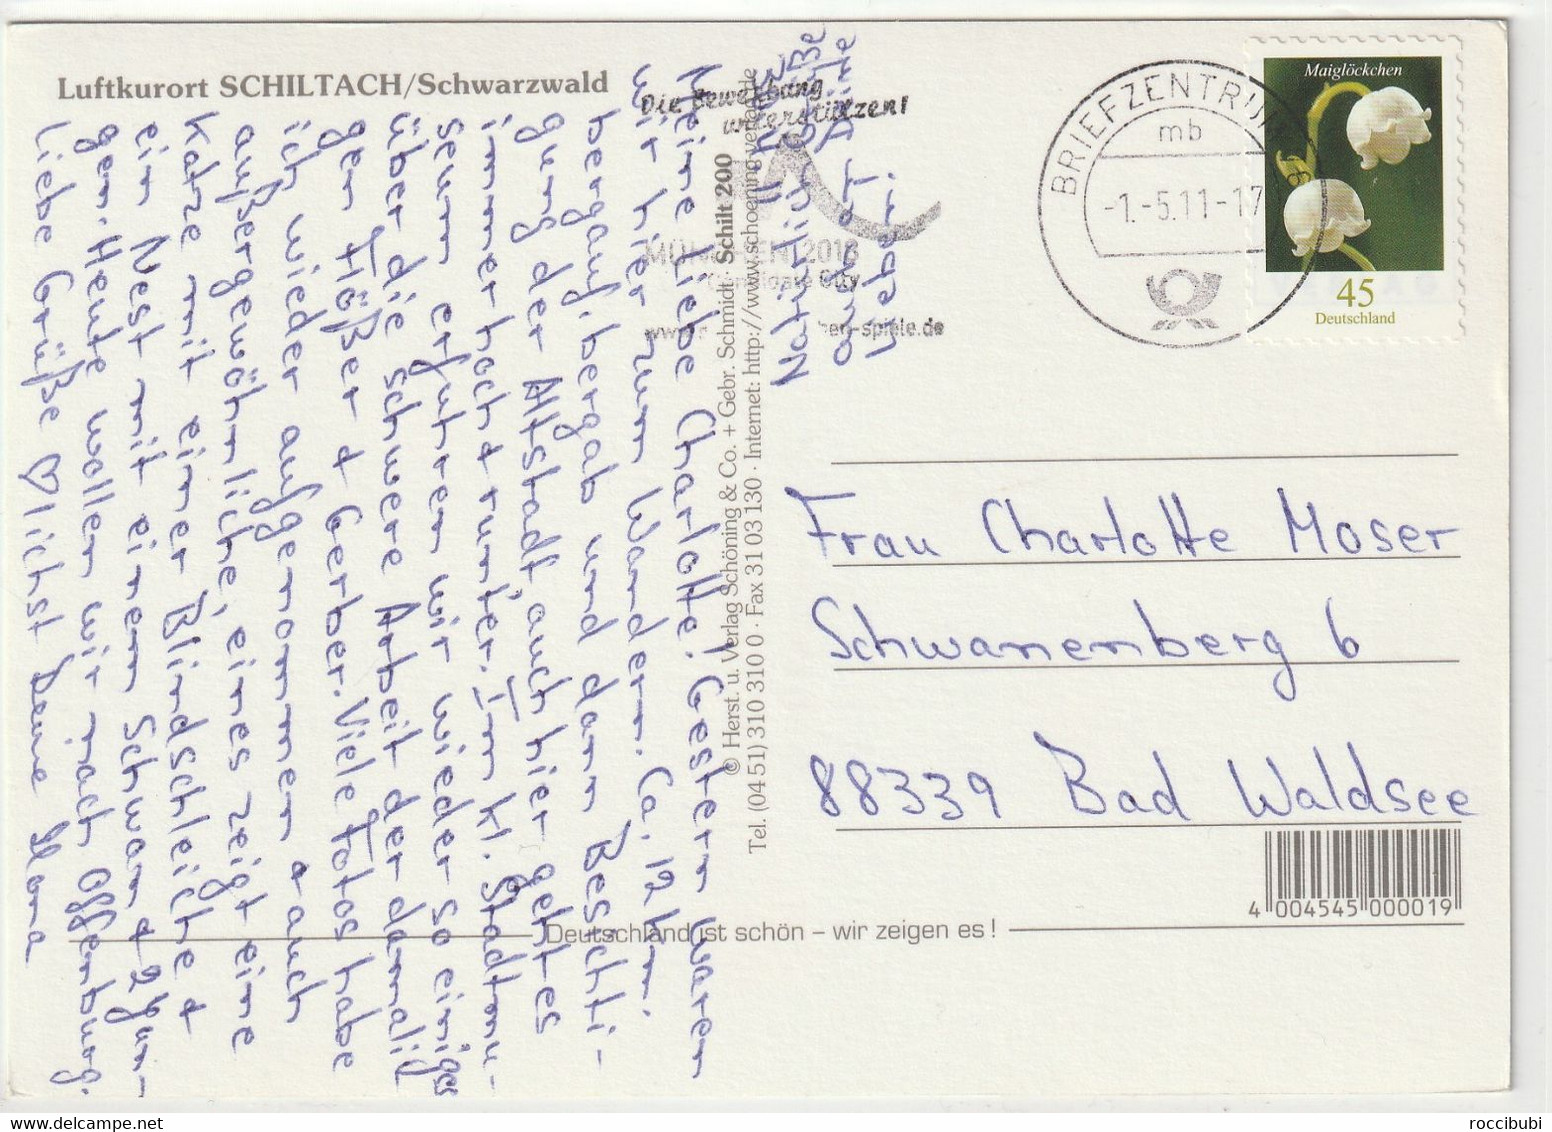 Luftkurort SCHILTACH/Schwarzwald
Meine liebe Charlotte! Gestern waren
wir hier zum Wandern. Ca. 12 km
bergauf, bergab und dann Beschti-
gung der Altstadt, auch hier geht es
immer hoch + runter. Im kl. Stadtmu-
seum erfuhren wir wieder so einiges
über die schwere Arbeit der damali
gen Flößer + Gerber. Viele Fotos habe
ich wieder aufgenommen + auch
außergewöhnliche, eines zeigt eine
Katze mit einer Blindschleiche +
ein Nest mit einem Schwan + 2
gen. Heute wollen wir nach Offenburg.
Liebe Grüße ♡lichst Deine Ilona
Natürlich
auch
© Herst. u. Verlag Schöning & Co. + Gebr. Schmidt · Schilt 200
Tel. (04 51) 310 310 0 · Fax 31 03 130 · Internet: http://www.schoening-verlag.de
Die Bewerbung
unterstützen!
MÜNCHEN 2018
Candidate City
BRIEFZENTRUM
mb
-1.-5.11-17
Maiglöckchen
45
Deutschland
Frau Charlotte Moser
Schwanenberg 6
88339 Bad Waldsee
4 004545 000019
Deutschland ist schön – wir zeigen es !
roccibubi